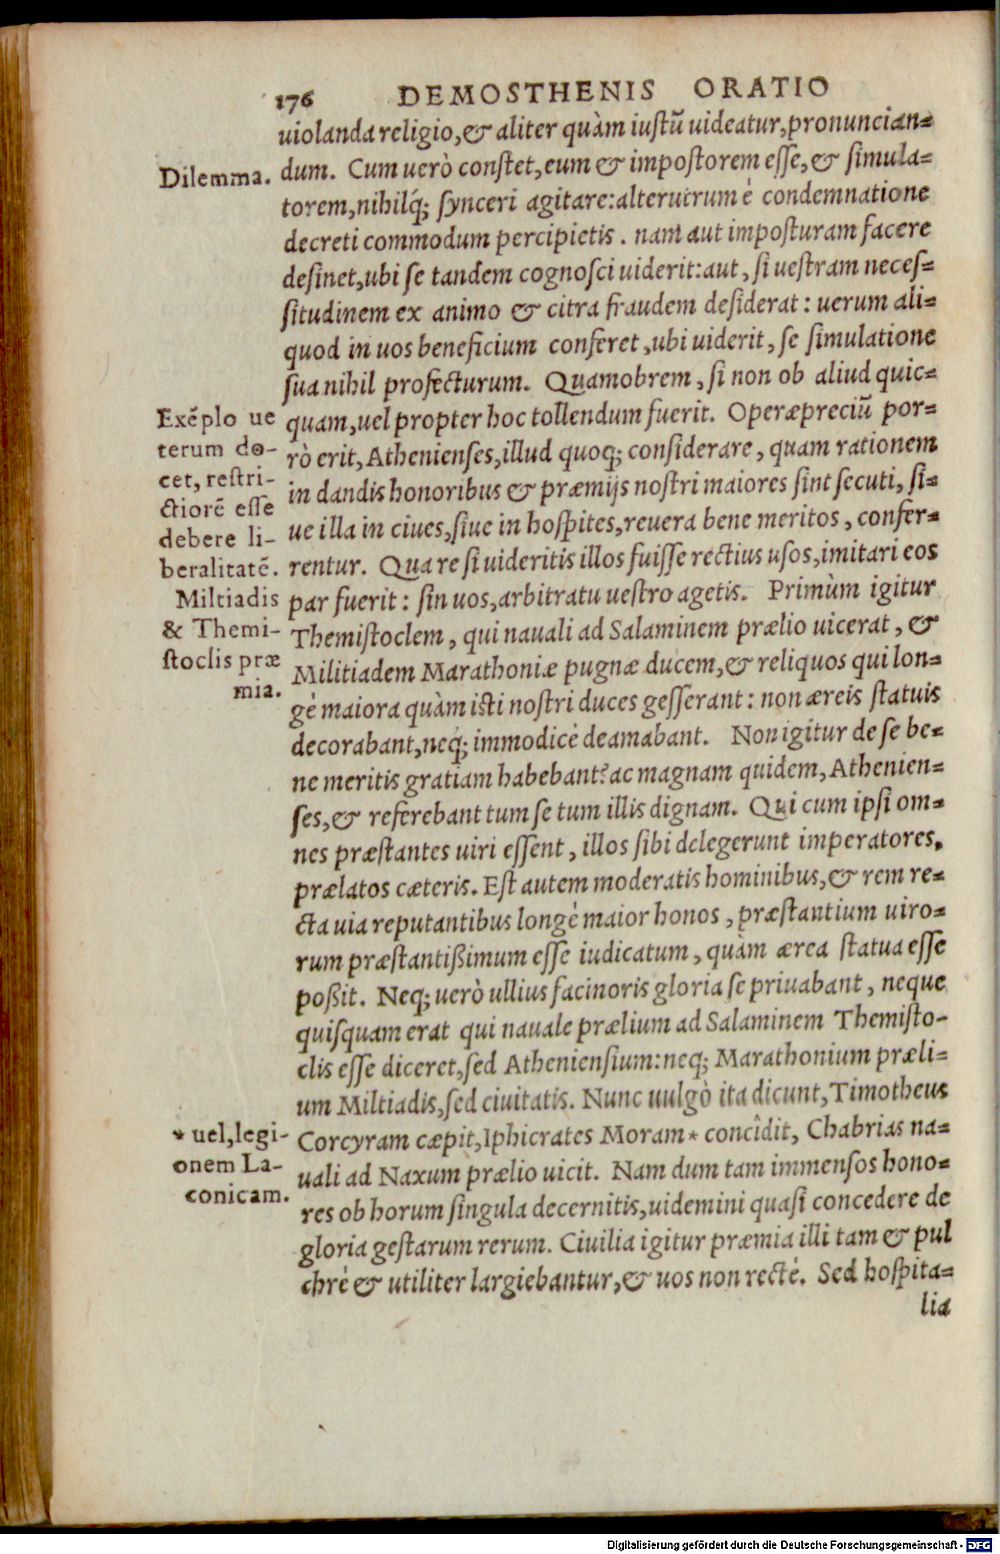 176 DEMOSTHENIS ORATIO
uiolanda religio,& aliter quàm iustũ uideatur,pronuncian=
dum. Cum uerò constet,eum & impostorem esse,& simula=
torem,nihilq́; synceri agitare:alterutrum è condemnatione
decreti commodum percipietis. nam aut imposturam facere
desinet,ubi se tandem cognosci uiderit:aut, si uestram neces=
situdinem ex animo & citra fraudem desiderat: uerum ali=
quod in uos beneficium conferet,ubi uiderit, se simulatione
sua nihil profecturum. Quamobrem, si non ob aliud quic=
quam,uel propter hoc tollendum fuerit. Operæpreciũ por=
rò erit,Athenienses,illud quoq; considerare, quam rationem
in dandis honoribus & præmijs nostri maiores sint secuti, si=
ue illa in ciues,siue in hospites,reuera bene meritos, confer=
rentur. Quare si uideritis illos fuisse rectius usos,imitari eos
par fuerit: sin uos,arbitratu uestro agetis. Primùm igitur
Themistoclem, qui nauali ad Salaminem prælio uicerat, &
Militiadem Marathoniæ pugnæ ducem,& reliquos qui lon=
gè maiora quàm isti nostri duces gesserant: non æreis statuis
decorabant,neq; immodicè deamabant. Non igitur de se be=
ne meritis gratiam habebant? ac magnam quidem, Athenien=
ses,& referebant tum se tum illis dignam. Qui cum ipsi om=
nes præstantes uiri essent, illos sibi delegerunt imperatores,
prælatos cæteris. Est autem moderatis hominibus,& rem re=
cta uia reputantibus longè maior honos, præstantium uiro=
rum præstantißimum esse iudicatum, quàm ærea statua esse
poßit. Neq; uerò ullius facinoris gloria se priuabant, neque
quisquam erat qui nauale prælium ad Salaminem Themisto-
clis esse diceret,sed Atheniensium:neq; Marathonium præli=
um Miltiadis,sed ciuitatis. Nunc uulgò ita dicunt,Timotheus
Corcyram cæpit,Iphicrates Moram* concîdit, Chabrias na=
uali ad Naxum prælio uicit. Nam dum tam immensos hono=
res ob horum singula decernitis,uidemini quasi concedere de
gloria gestarum rerum. Ciuilia igitur præmia illi tam & pul
chrè & utiliter largiebantur,& uos non rectè. Sed hospita=
lia
Dilemma.
Exẽplo ue
terum do-
cet, restri-
ctiorẽ esse
debere li-
beralitatẽ.
Miltiadis
& Themi-
stoclis præ
mia.
* uel,legi-
onem La-
conicam.
Digitalisierung gefördert durch die Deutsche Forschungsgemeinschaft - DFG